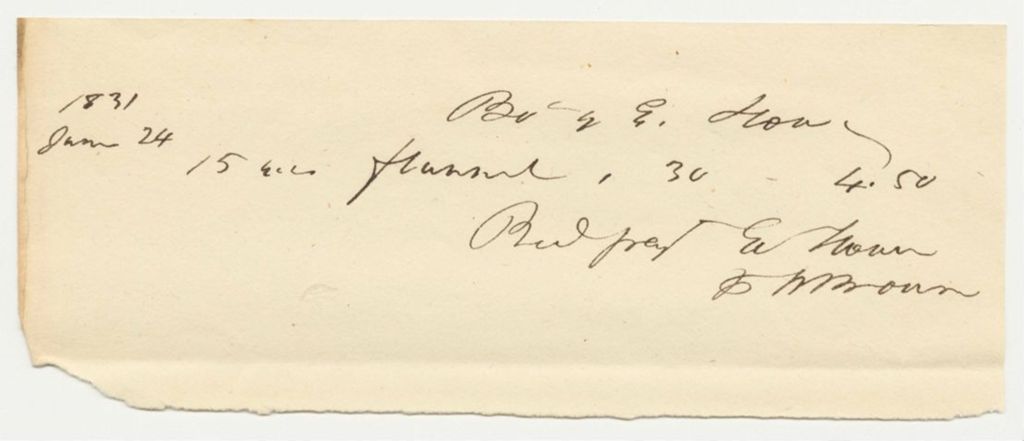 1831
June 24
Bo't of E. Howe
15 yds flannel , 30 - 4.50
Rec'd payt E. Howe
Brown